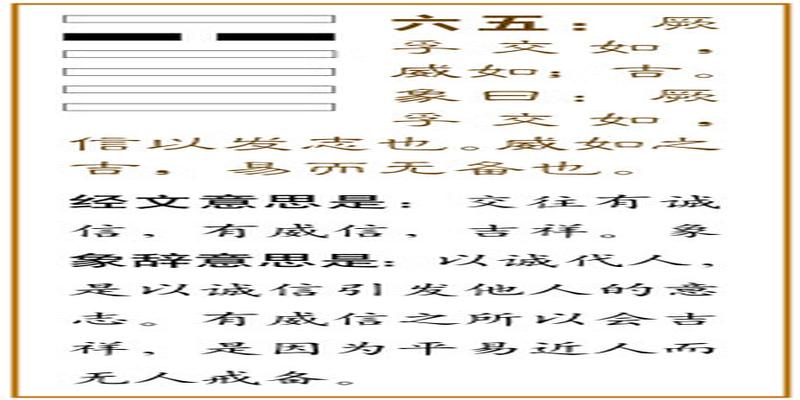 六五：厥
孚交如，
威如；吉。
象曰：厥
孚交如，
信以发志也。威如之
吉，易而无备也。
经文意思是：交往有诚
信，有威信，吉祥。象
象辞意思是：以诚代人，
是以诚信引发他人的意
志。有威信之所以会吉
祥，是因为平易近人而
无人戒备。